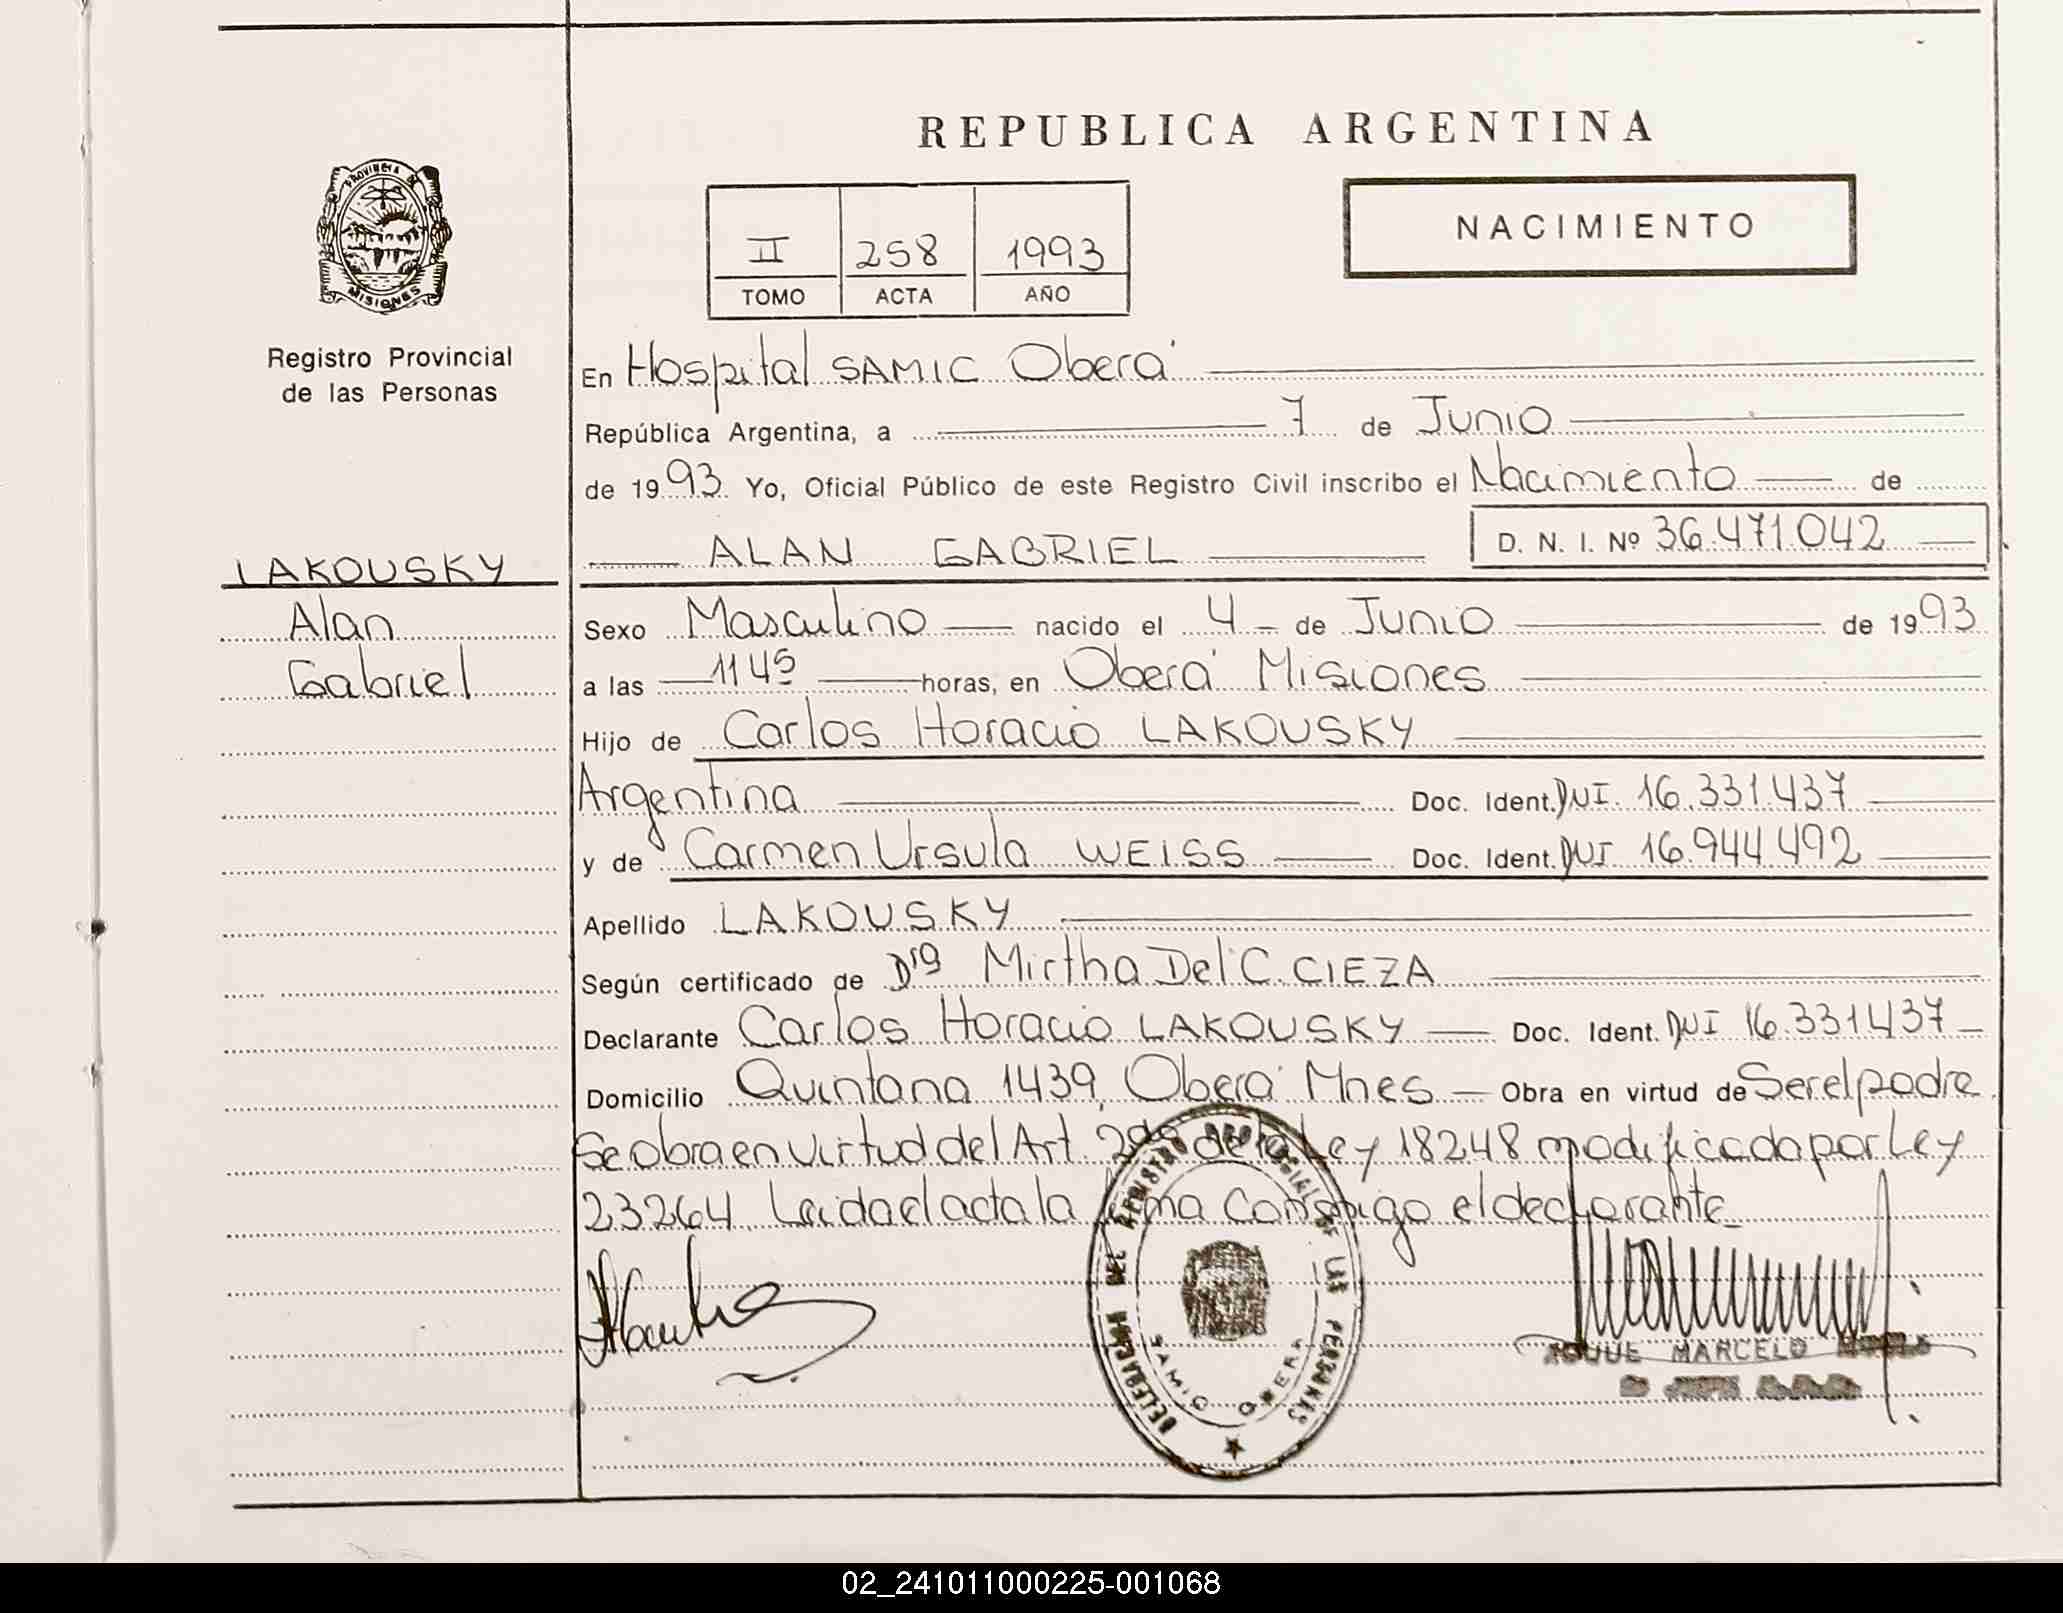 REPUBLICA ARGENTINA
NACIMIENTO
II 258 1993
TOMO ACTA AÑO
PROVINCIA DE
MISIONES
Registro Provincial
de las Personas
En Hospital SAMIC Oberá
República Argentina, a 7 de Junio
de 1993 Yo, Oficial Público de este Registro Civil inscribo el Nacimiento de
ALAN GABRIEL D. N. I. Nº 36.471.042
LAKOUSKY
Alan
Gabriel
Sexo Masculino nacido el 4 de Junio de 1993
a las 1145 horas, en Oberá Misiones
Hijo de Carlos Horacio LAKOUSKY
Argentina Doc. Ident. DNI. 16.331.437
y de Carmen Ursula WEISS Doc. Ident. DNI 16.944.492
Apellido LAKOUSKY
Según certificado de Dra Mirtha Del C. CIEZA
Declarante Carlos Horacio LAKOUSKY Doc. Ident. DNI 16.331437
Domicilio Quintana 1439, Oberá Mnes Obra en virtud de Ser el padre.
Se obra en virtud del Art. de la Ley 18248 modificada por Ley
23264 Leida el acta la firma conmigo el declarante
DELEGACION DEL REGISTRO PROVINCIAL DE LAS PERSONAS
SAMIC OBERA
ROQUE MARCELO
02_241011000225-001068